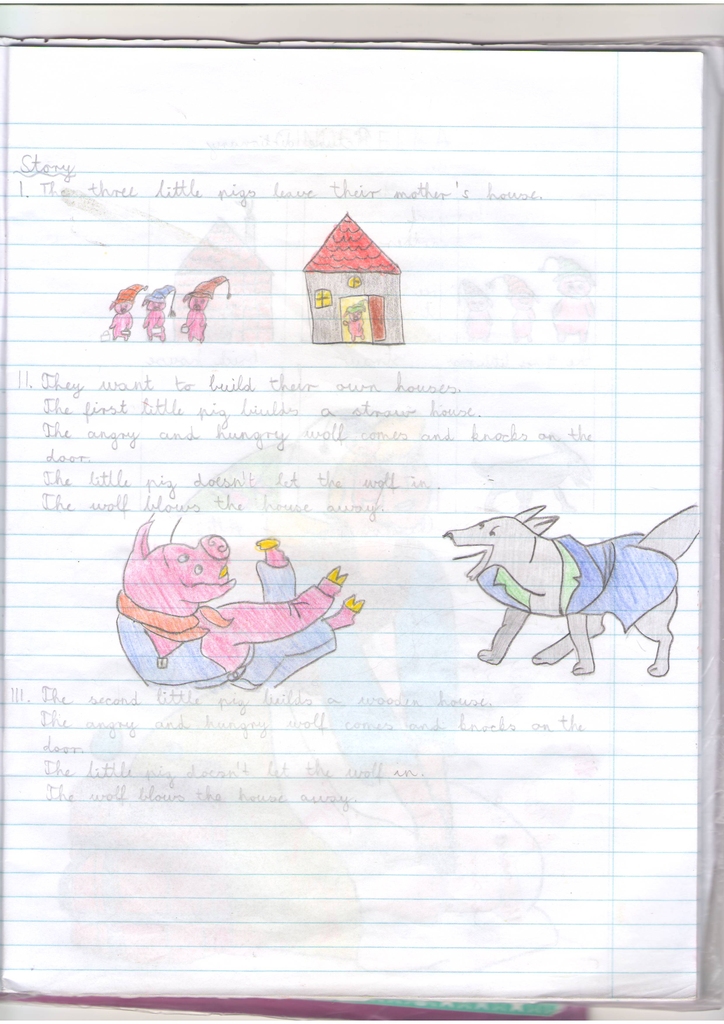 Story
I. The three little pigs leave their mother's house.
II. They want to build their own houses.
The first little pig builds a straw house.
The angry and hungry wolf comes and knocks on the
door.
The little pig doesn't let the wolf in.
The wolf blows the house away.
III. The second little pig builds a wooden house.
The angry and hungry wolf comes and knocks on the
door.
The little pig doesn't let the wolf in.
The wolf blows the house away.